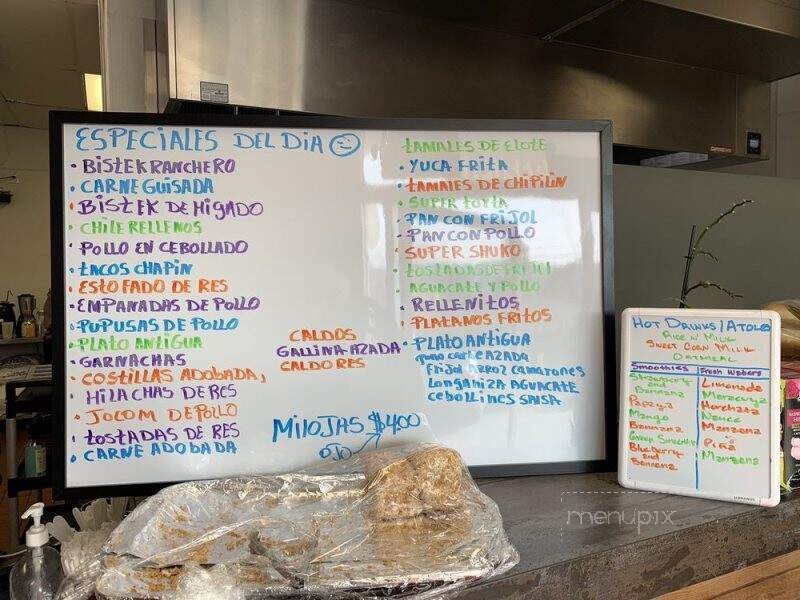 ESPECIALES DEL DIA
• BISTEK RANCHERO
• CARNE GUISADA
• BISTEK DE HIGADO
• CHILE RELLENOS
• POLLO EN CEBOLLADO
• TACOS CHAPIN
• ESTOFADO DE RES
• EMPANADAS DE POLLO
• PUPUSAS DE POLLO
• PLATO ANTIGUA
• GARNACHAS
• COSTILLAS ADOBADA,
• HILACHAS DE RES
• JOCOM DE POLLO
• TOSTADAS DE RES
• CARNE ADOBADA
CALDOS
GALLINA-AZADA
CALDO RES
MILOJAS $4.00
OJO
TAMALES DE ELOTE
• YUCA FRITA
• TAMALES DE CHIPILIN
• SUPER TORTA
• PAN CON FRIJOL
• PAN CON POLLO
• SUPER SHUKO
• TOSTADAS DE FRIJOL
AGUACATE Y POLLO
• RELLENITOS
• PLATANOS FRITOS
• PLATO ANTIGUA
CARNE AZADA
FRIJOL ARROZ CAMARONES
LONGANIZA AGUACATE
CEBOLLINES SALSA
HOT DRINKS/ATOLE
RICE N' MILK
SWEET CORN MILK
OATMEAL
Smoothies
Strawberry
and
Bannana
Papaya
Mango
Bannana
Green Smoothie
Blueberry
and
Bannana
Fresh Waters
Limonada
Maracuya
Horchata
Nance
Manzana
Piña
Manzana
menupix